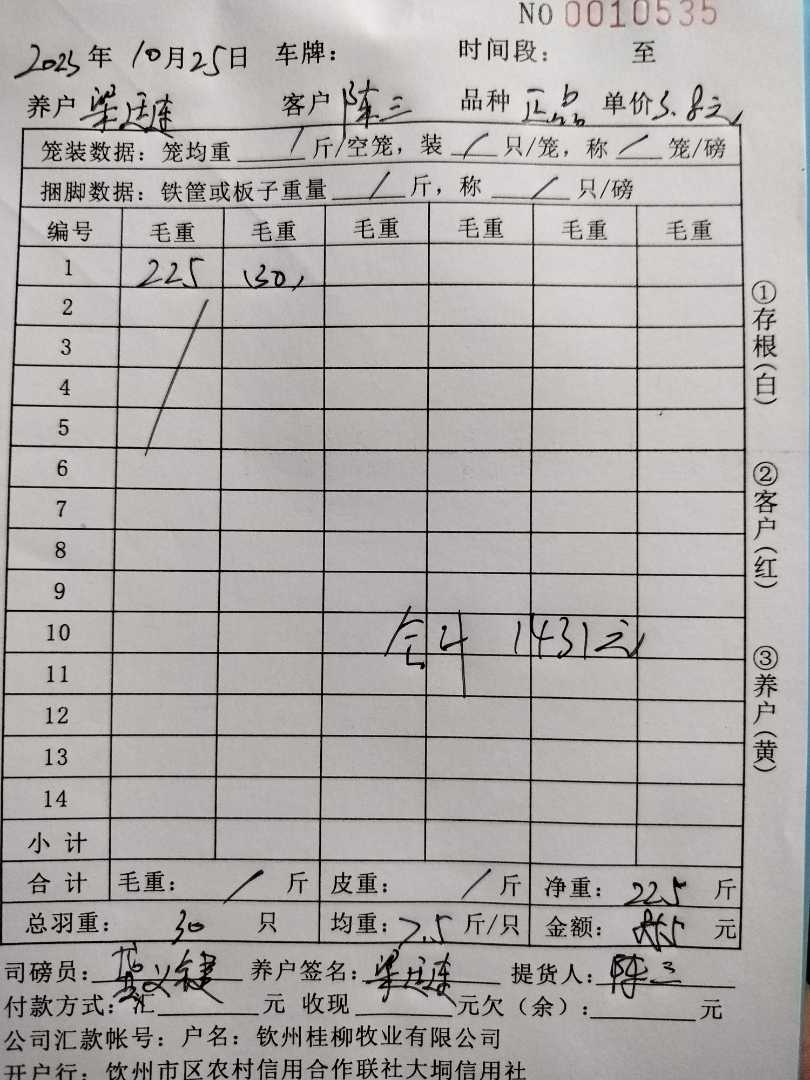 NO 0010535
2025年 10月25日 车牌: 时间段: 至
养户 梁廷连 客户 陈三 品种 正品 单价 3.8元
笼装数据: 笼均重 / 斤/空笼, 装 / 只/笼, 称 / 笼/磅
捆脚数据: 铁筐或板子重量 / 斤, 称 / 只/磅
编号 毛重 毛重 毛重 毛重 毛重 毛重
1 225 (30)
2
3
4
5
6
7
8
9
10 合计 1431元
11
12
13
14
小计
合计 毛重: / 斤 皮重: / 斤 净重: 225 斤
总羽重: 30 只 均重: 7.5 斤/只 金额: 855 元
司磅员: 养户签名: 梁廷连 提货人: 陈三
付款方式: 汇 元 收现 元欠(余): 元
公司汇款帐号: 户名: 钦州桂柳牧业有限公司
开户行: 钦州市区农村信用合作联社大垌信用社
①存根(白)
②客户(红)
③养户(黄)